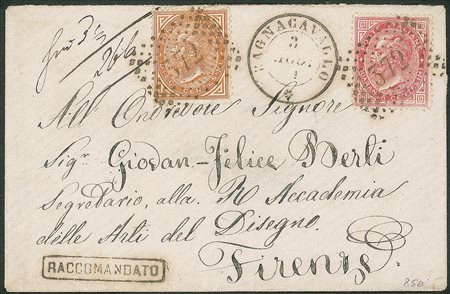 379
BAGNACAVALLO
3
379
All' Onorevole Signore
Sigr Giovan-Felice Berti
Segretario, alla R Accademia
delle Arti del Disegno.
Firenze.
RACCOMANDATO
850